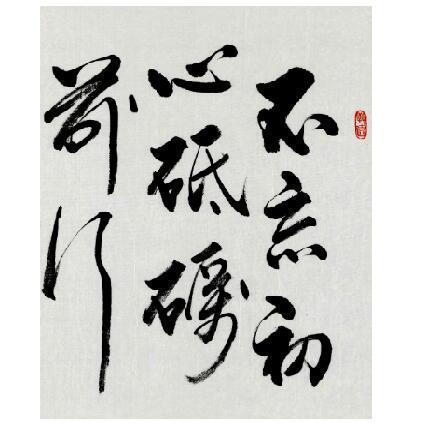 不忘初
心砥砺
前行